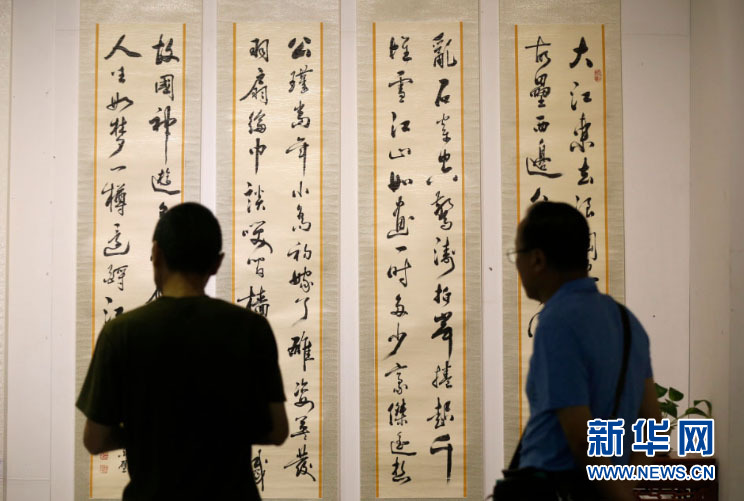 大江東去浪
故壘西邊人
亂石穿空驚濤拍岸捲起千
堆雪江山如畫一時多少豪傑遙想
公瑾當年小喬初嫁了雄姿英發
羽扇綸巾談笑間檣
故國神遊
人生如夢一樽還酹江
新华网
WWW.NEWS.CN